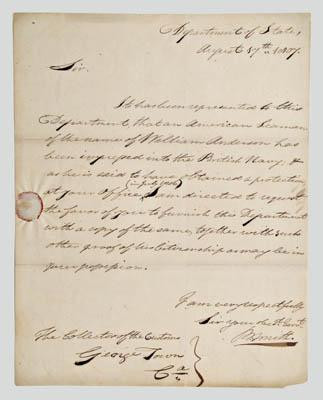 Department of State,
August 17th 1807.
Sir.
It has been represented to this
Department, that an American Seaman
of the name of William Anderson has
been impressed into the British Navy, &
as he is said to have obtained a protection
(in July 1806)
at your Office, I am directed to request
the favor of you to furnish this Department
with a copy of the same, together with such
other proof of his Citizenship as may be in
your possession.
I am very respectfully
Sir your Obt. Servt.
Smith.
The Collector of the Customs
George Town